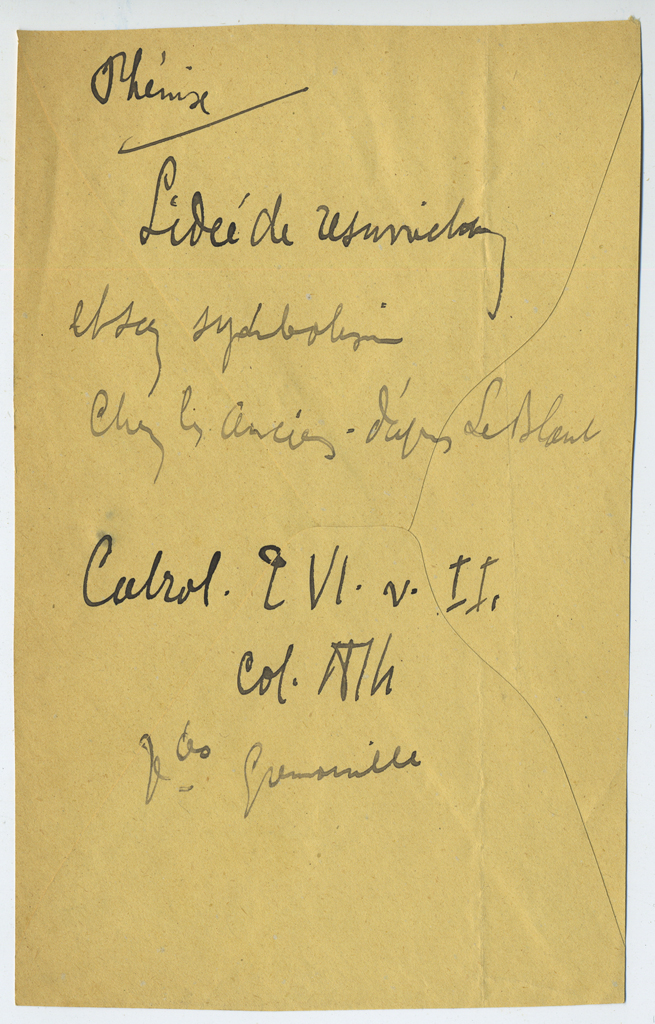 Phénix
L'idée de résurrection
et son symbolisme
Chez les Anciens - d'après Le Blant
Cabrol. T VI. v. II.
col.
Grenouille